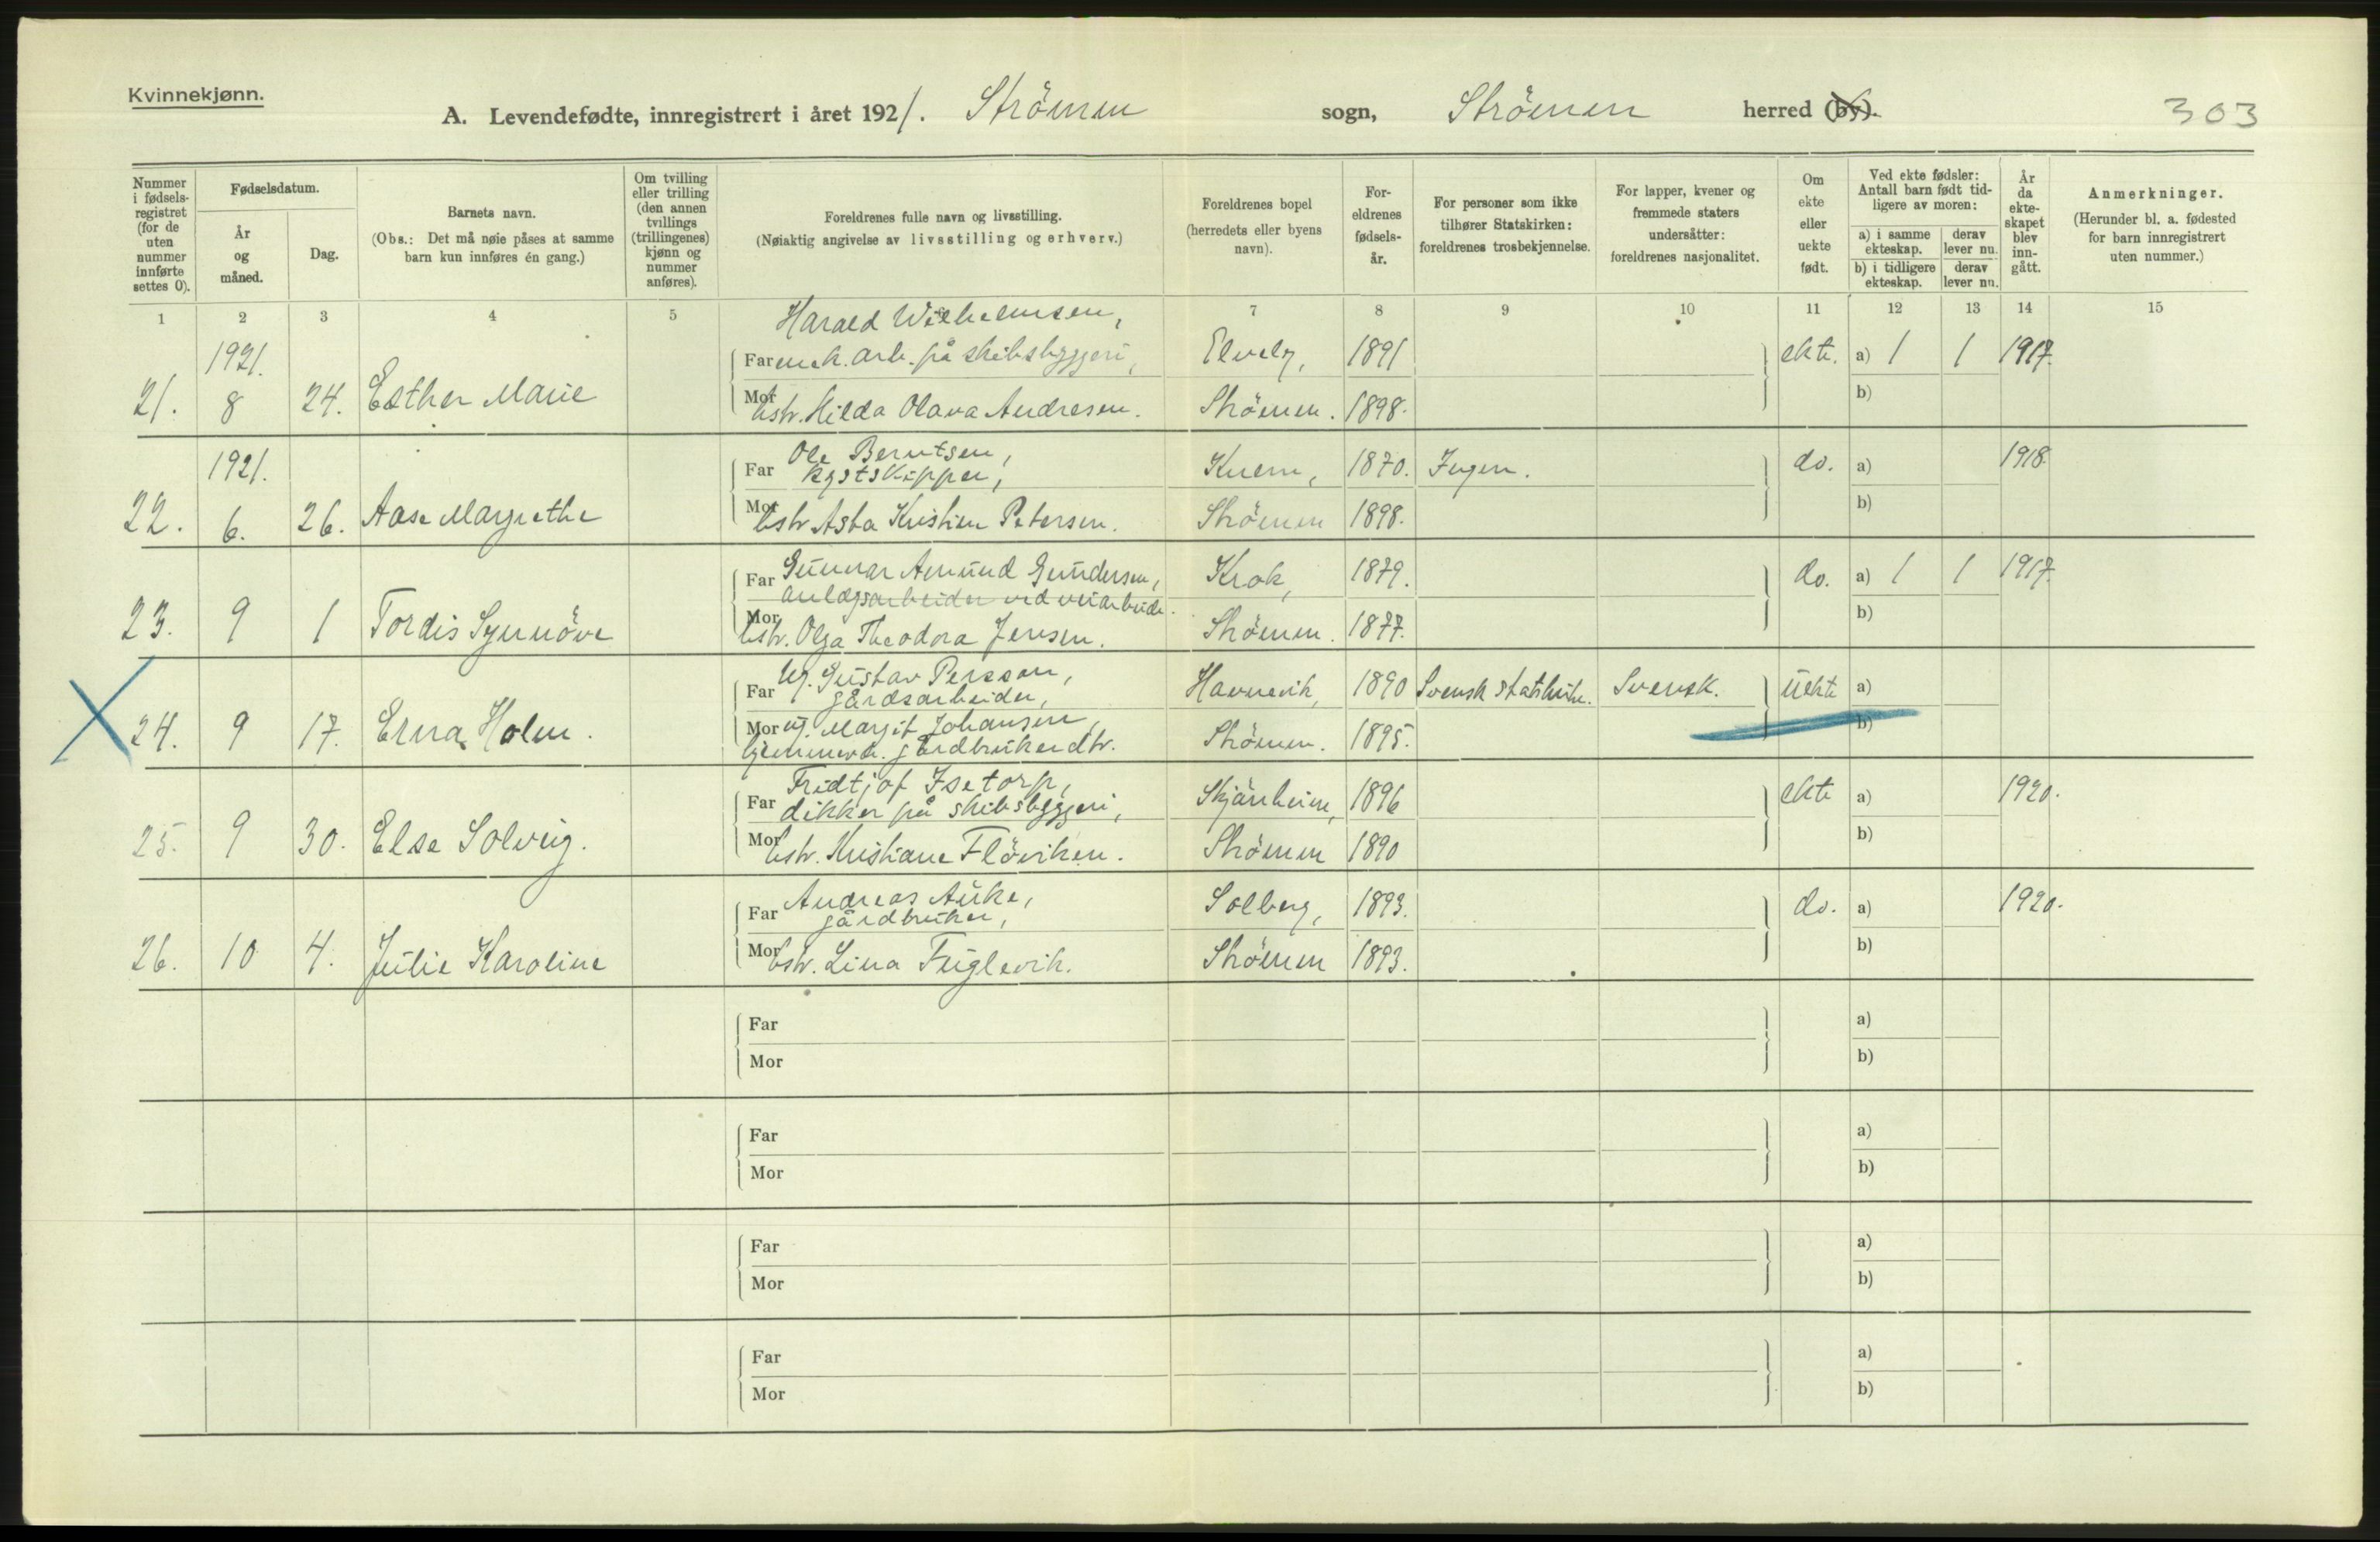 Kvinnekjønn.
A. Levendefødte, innregistrert i året 1921. Strömm sogn, Strömm herred (by). 303
Nummer i fødsels-registret (for de uten nummer innførte settes 0).
Fødselsdatum.
År og måned.
Dag.
Barnets navn.
(Obs.: Det må nøie påses at samme barn kun innføres én gang.)
Om tvilling eller trilling (den annen tvillings (trillingenes) kjønn og nummer anføres).
Foreldrenes fulle navn og livsstilling.
(Nøiaktig angivelse av livsstilling og erhverv.)
Foreldrenes bopel (herredets eller byens navn).
For-eldrenes fødsels-år.
For personer som ikke tilhører Statskirken: foreldrenes trosbekjennelse.
For lapper, kvener og fremmede staters undersåtter: foreldrenes nasjonalitet.
Om ekte eller uekte født.
Ved ekte fødsler: Antall barn født tid-ligere av moren:
a) i samme ekteskap.
derav lever nu.
b) i tidligere ekteskap.
derav lever nu.
År da ekte-skapet blev inn-gått.
Anmerkninger.
(Herunder bl. a. fødested for barn innregistrert uten nummer.)
1 2 3 4 5 7 8 9 10 11 12 13 14 15
Harald Wilhelmsen,
1921. Far mek. arb. på skibsbyggeri, Elvely, 1891 ekte. a) 1 1 1917.
21. 8 24. Esther Marie Mor hstr. Hilda Olava Andresen. Strömm. 1898. b)
Ole Berntsen,
1921. Far kystskipper, Knem, 1870. Ingen. do. a) 1918.
22. 6. 26. Aase Margrethe Mor hstr Asta Kristine Petersen. Strömm 1898. b)
Far Gunnar Amund Gundersen, Krok, 1879. do. a) 1 1 1917.
anlægsarbeider ved veiarbeide.
23. 9 1 Tordis Synnöve Mor hstr. Olga Theodora Jensen. Strömm. 1877. b)
Ug. Gustav Persson,
Far gårdsarbeider, Havnevik, 1890 Svensk statskirke. Svensk. Uekte a)
24. 9 17. Erna Holm. Mor ug. Margit Johansen, Strömm. 1895. b)
hjemmev. gårdbrukerdtr.
Fridtjof Isetorp,
Far dikker på skibsbyggeri, Skjänheim, 1896 ekte a) 1920.
25. 9 30. Else Solveig. Mor hstr. Kristiane Flöviken. Strömm 1890 b)
Andreas Auke,
Far gårdbruker, Solberg, 1893. do. a) 1920.
26. 10 4. Julie Karoline Mor hstr. Lina Fuglevik. Strömm 1893. b)
Far a)
Mor b)
Far a)
Mor b)
Far a)
Mor b)
Far a)
Mor b)